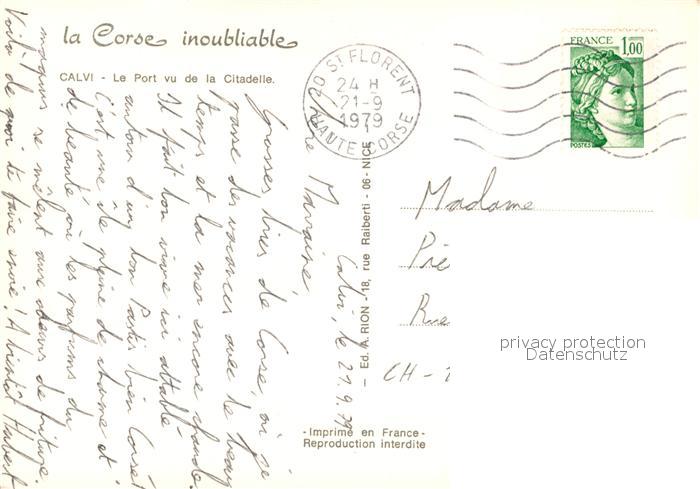 la Corse inoubliable
CALVI - Le Port vu de la Citadelle.
20 ST FLORENT
24 H
21-9
1979
HAUTE CORSE
FRANCE
1,00
POSTES
Calvi, le 21.9.79
Chère Marraine,
Grosses bises de Corse, où je
passe des vacances avec le beau
temps et la mer encore chaude.
Il fait bon vivre ici attablé
autour d'un bon Pastis bien Corsé!
C'est une île pleine de charme et
de beauté où les parfums du
maquis se mêlent aux odeurs de friture.
Voilà de quoi te faire envie! A bientôt Hubert
- Ed. A. RION - 18, rue Raiberti - 06 - NICE
Madame
Rue
CH -
privacy protection
Datenschutz
- Imprimé en France -
Reproduction interdite